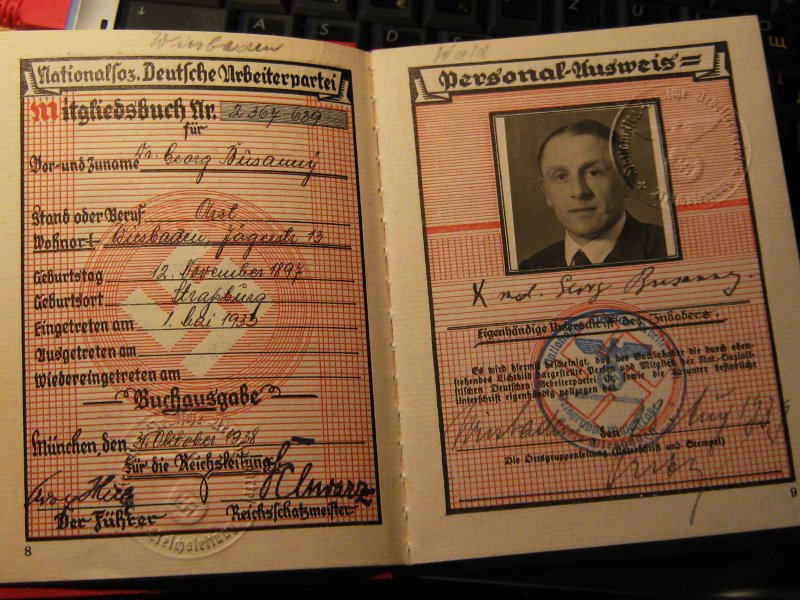 Wiesbaden
Nationalsoz. Deutsche Arbeiterpartei
Mitgliedsbuch Nr. 2 367 629
für
Vor- und Zuname Dr. Georg Busanny
Stand oder Beruf Arzt
Wohnort Wiesbaden, Jägerstr 13
Geburtstag 12. November 1897
Geburtsort Straßburg
Eingetreten am 1. Mai 1933
Ausgetreten am
Wiedereingetreten am
Buchausgabe
München, den 31. Oktober 1938
Für die Reichsleitung
Schwarz
Der Führer Reichsschatzmeister
8
Personal-Ausweis
med. Georg Busanny.
Eigenhändige Unterschrift des Inhabers.
Es wird hiermit bescheinigt, daß der Buchinhaber die durch oben-
stehendes Lichtbild dargestellte Person und Mitglied der Nat.-Soziali-
stischen Deutschen Arbeiterpartei ist, sowie die darunter befindliche
Unterschrift eigenhändig vollzogen hat.
Wiesbaden, den
Die Ortsgruppenleitung (Unterschrift und Stempel)
9